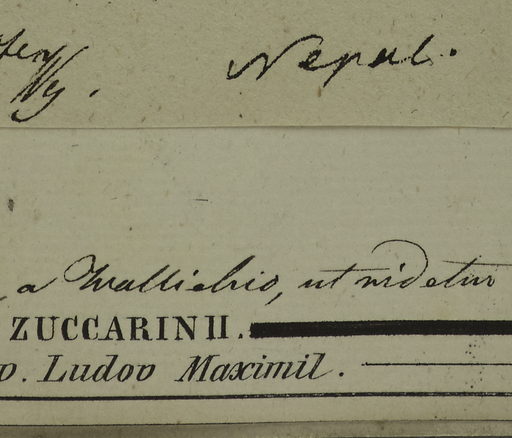 Nepal.
a Wallichio, ut videtur
ZUCCARINII.
Ludov Maximil.